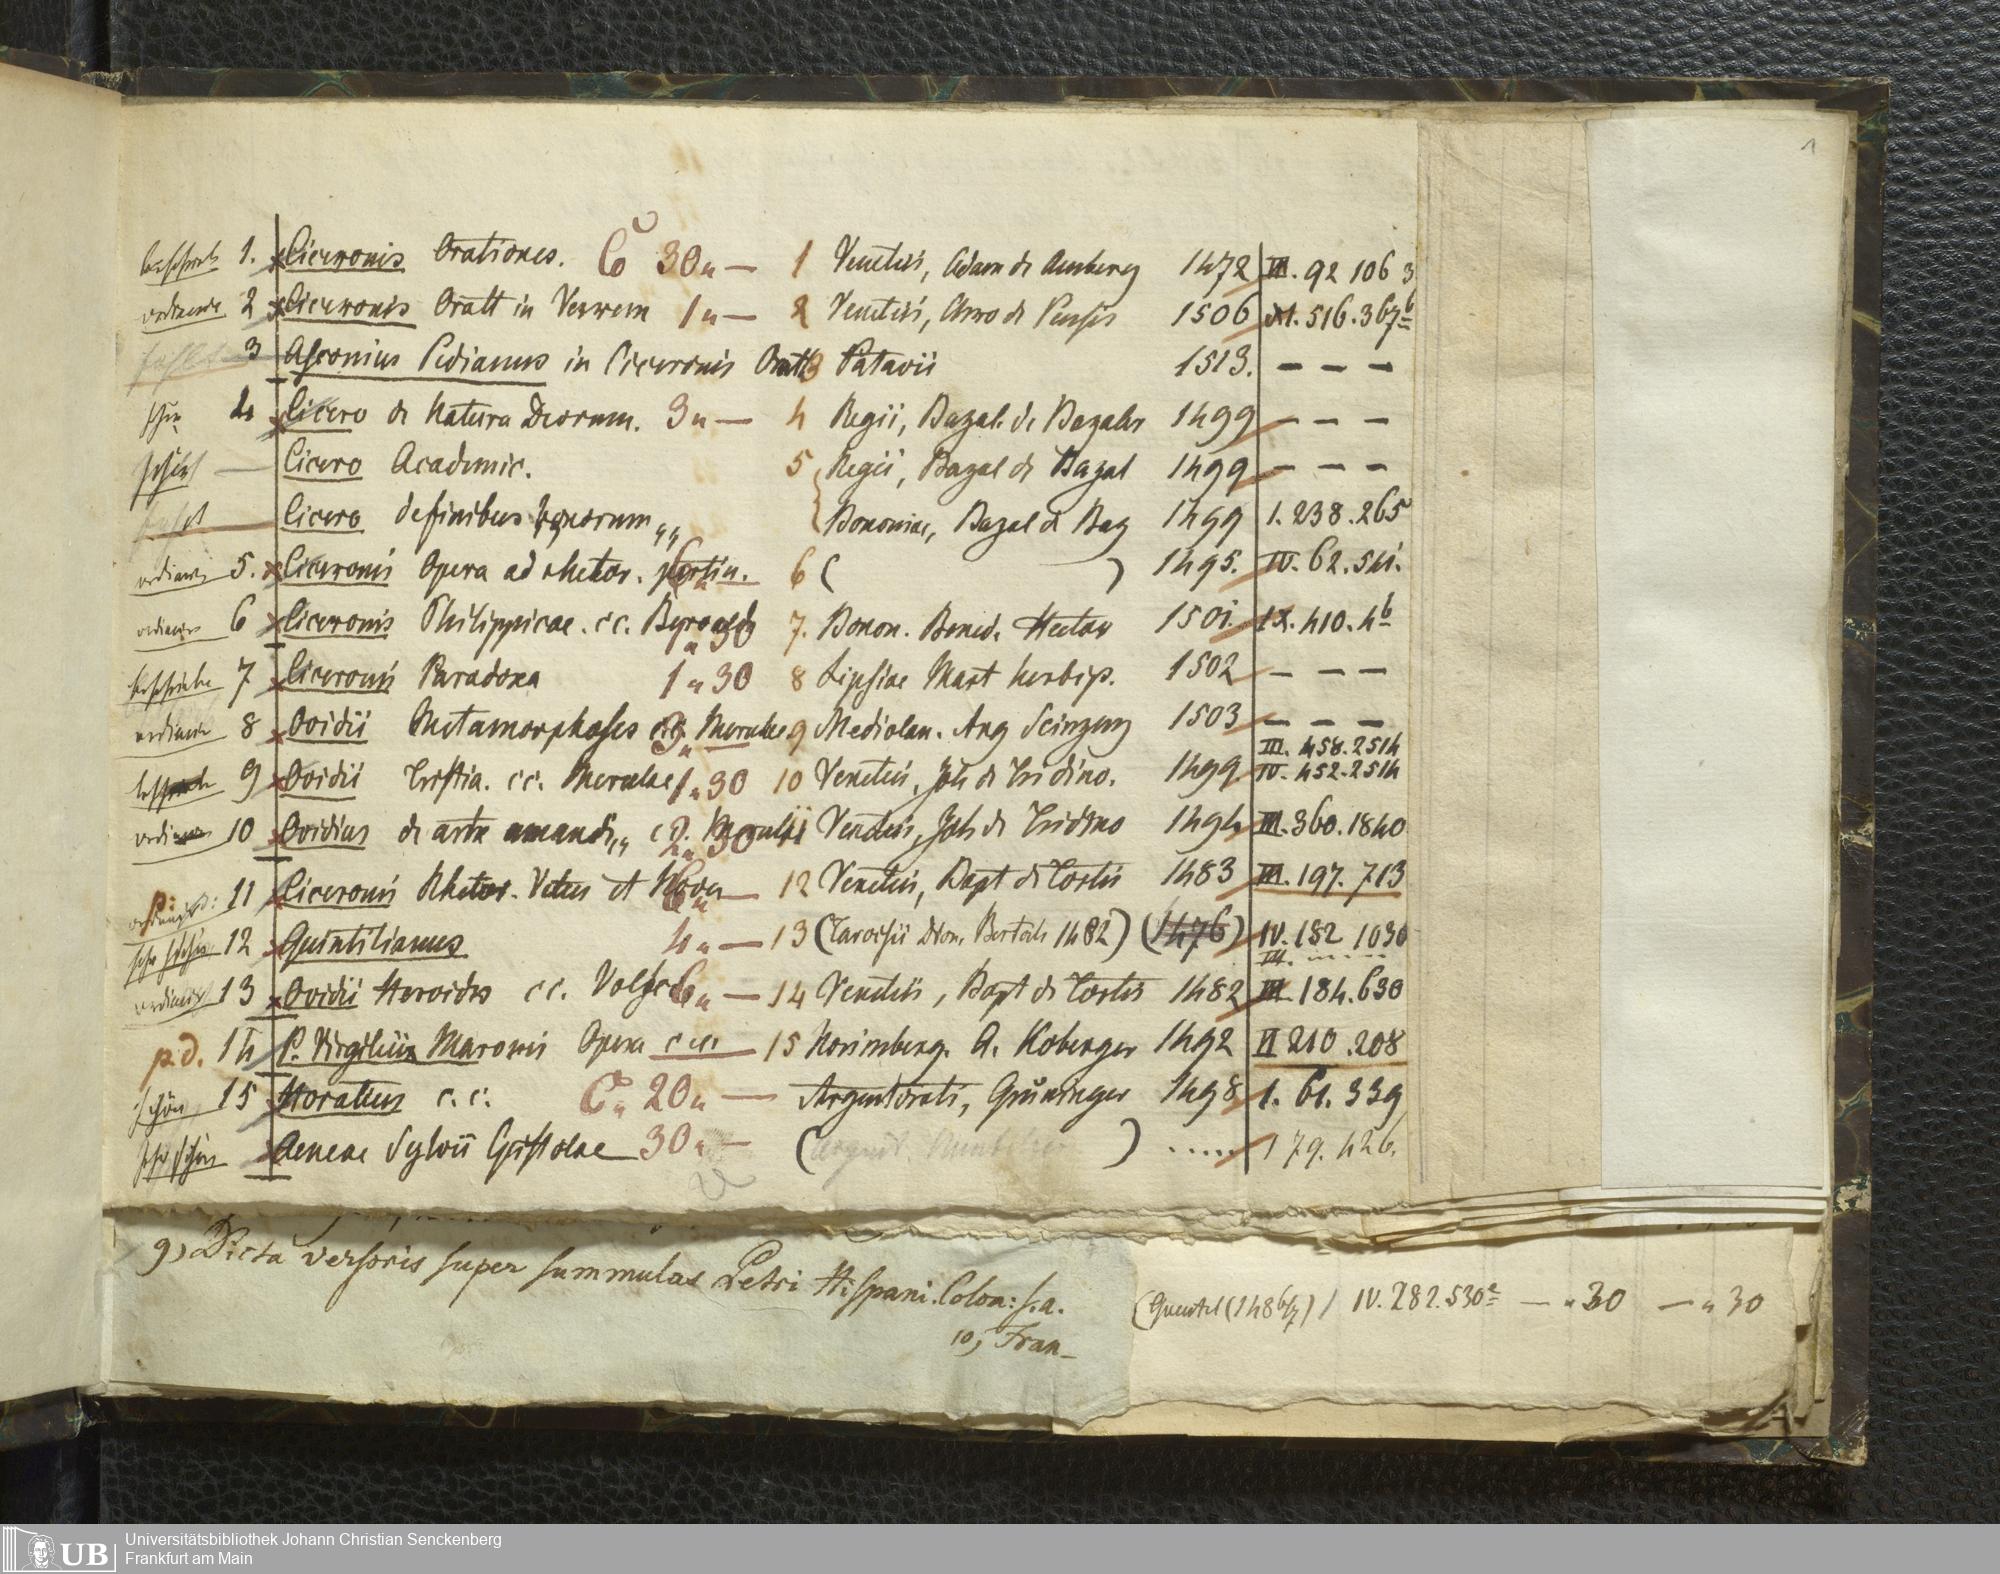 1
beschrieb 1. Ciceronis Orationes. Co 30 „ — 1 Venetiis, Adam de Amberg 1472 III. 92 106 3
ordinair 2 Ciceronis Oratt in Verrem 1 „ — 2 Venetiis, Arro de Pensis 1506 XI. 516. 367b
fehlt 3 Asconius Pedianus in Ciceronis Oratt 3 Patavii 1513. — — —
schön 4 Cicero de Natura Deorum. 3 „ — 4 Regii, Bazal. de Bazaler 1499 — — —
schön — Cicero Academic. 5 Regii, Bazal de Bazal 1499 — — —
fehlt Cicero de finibus bonorum „„ Bononiae, Bazal de Baz 1499 I. 238. 265
ordinair 5. Ciceronis Opera ad rhetor. pertin. 6 ( ) 1495. IV. 62. 541.
ordinair 6 Ciceronis Philippicae. cc. Beroaldi 1 „ 30 7. Bonon. Bened. Hector 1501. IX. 410. 4b
beschrieben 7 Ciceronis Paradoxa 1 „ 30 8 Lipsiae Mart herbip. 1502 — — —
ordinair 8 Ovidii Metamorphoses cc. Merulae 9 Mediolan. Ang Scinzenz 1503 — — —
III. 458. 2514
9 Ovidii Tristia. cc. Merulae 1 „ 30 10 Venetiis, Joh de Tridino. 1499 IV. 452. 2514
ordinair 10 Ovidius de arte amandi „„ c. Merulae 2 „ 30 11 Venetiis, Joh de Tridino 1494 III. 360. 1840
p: 11 Ciceronis Rhetor. Vetus et Nova 6 „ — 12 Venetiis, Bapt de Tortis 1483 III. 197. 713
sehr schön 12 Quintilianus 4 „ — 13 (Tarvisii Dion. Bertoch 1482) (1476) IV. 182 1030
III. — — — —
ordinair 13 Ovidii Heroides cc. Volsci 6 „ — 14 Venetiis, Bapt de Tortis 1482 III. 184. 630
p.d. 14 P. Virgilii Maronis Opera c cc. 15 Norimberg. A. Koberger 1492 II 210. 208
schön 15 Horatius c. c. C „ 20 „ — Argentorati, Grüninger 1498 I. 61. 339
sehr schön Aeneae Sylvii Epistolae 30 „ — ( ) ..... I 79. 426.
9) Dicta versoris super summulas Petri Hispani. Colon: s.a. (Quentel (1486/7) / IV. 282. 530e — „ 30 — „ 30
10) Fran-
UB Universitätsbibliothek Johann Christian Senckenberg
Frankfurt am Main